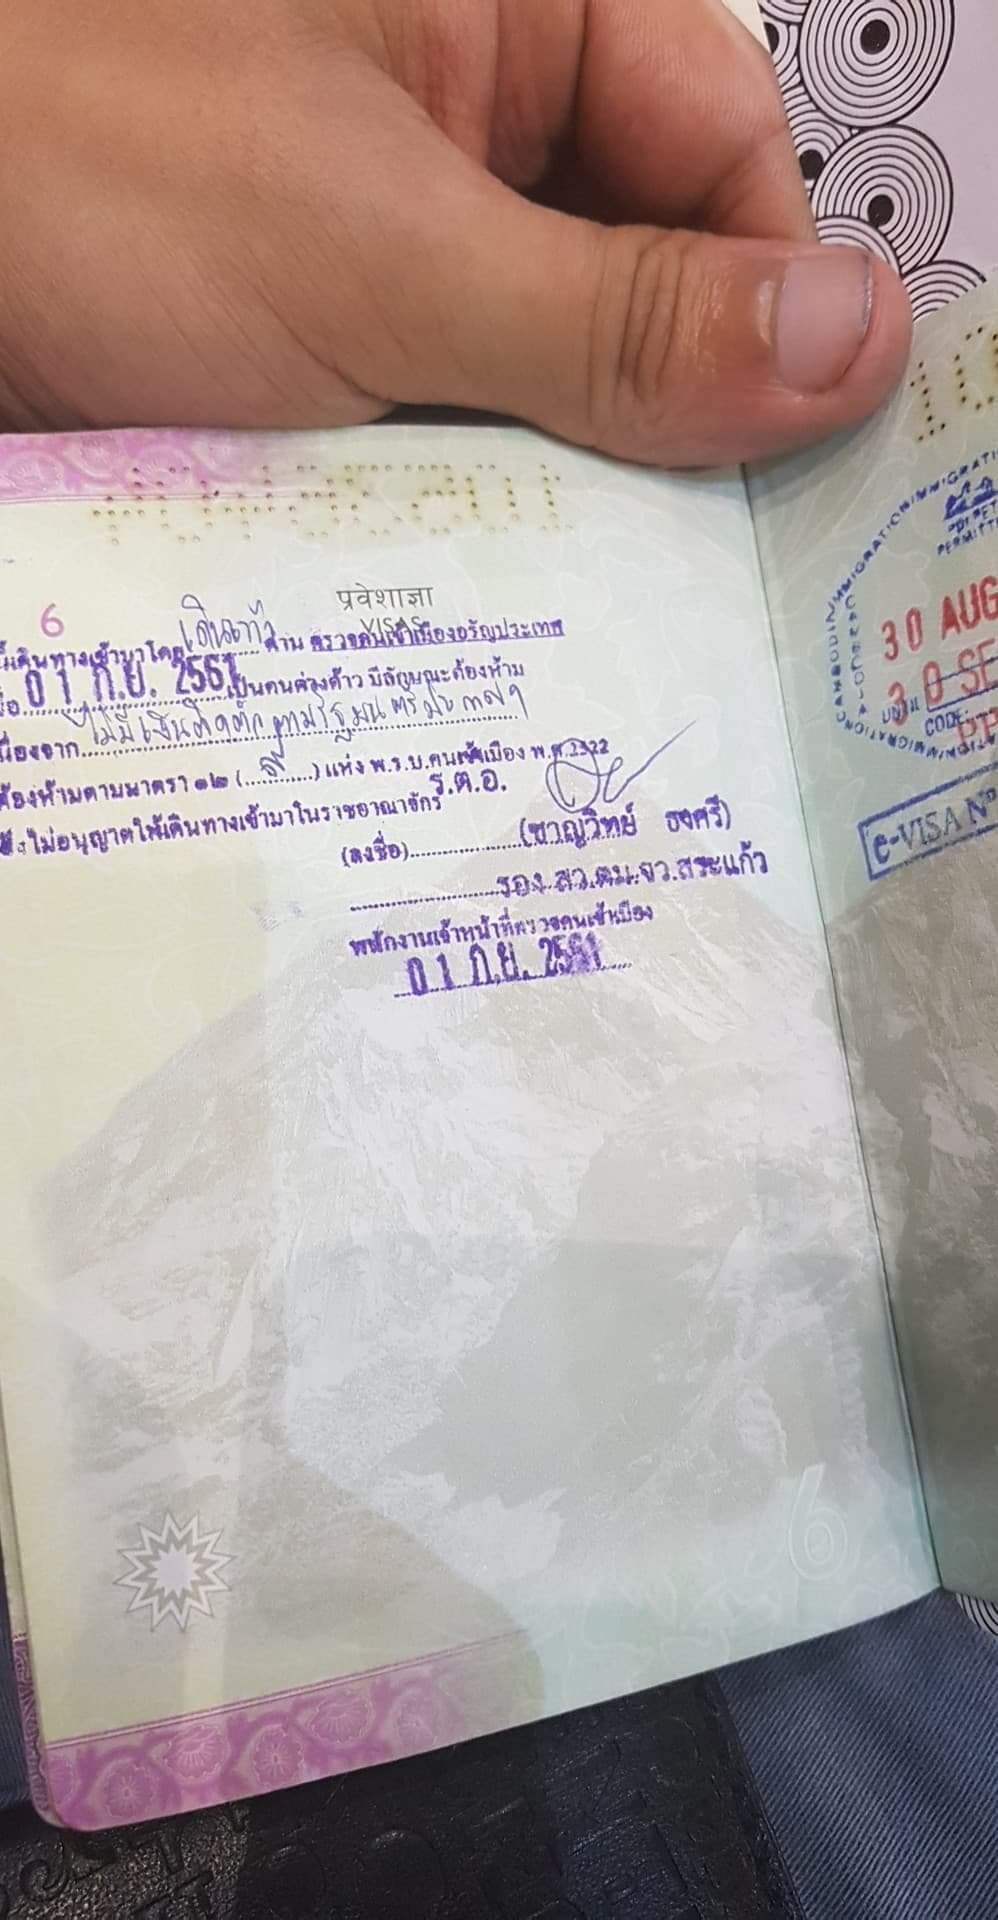 6
प्रवेशाज्ञा
VISAS
เดินทางเข้ามาโดย เดินเท้า ด่าน ตรวจคนเข้าเมืองอรัญประเทศ
01 ก.ย. 2561 เป็นคนต่างด้าว มีลักษณะต้องห้าม
เนื่องจาก ไม่มีเงินติดตัว ตามรัฐมนตรีประกาศฯ
ต้องห้ามตามมาตรา ๑๒ (......) แห่ง พ.ร.บ.คนเข้าเมือง พ.ศ.2522
จึงไม่อนุญาตให้เดินทางเข้ามาในราชอาณาจักร
ร.ต.อ.
(ลงชื่อ)....................(ชาญวิทย์ ธงศรี)
รอง สว.ตม.จว.สระแก้ว
พนักงานเจ้าหน้าที่ตรวจคนเข้าเมือง
01 ก.ย. 2561
6
IMMIGRATION
CAMBODIA
POI PET
PERMITTED
30 AUG
UNTIL
30 SE
CODE:
e-VISA Nº